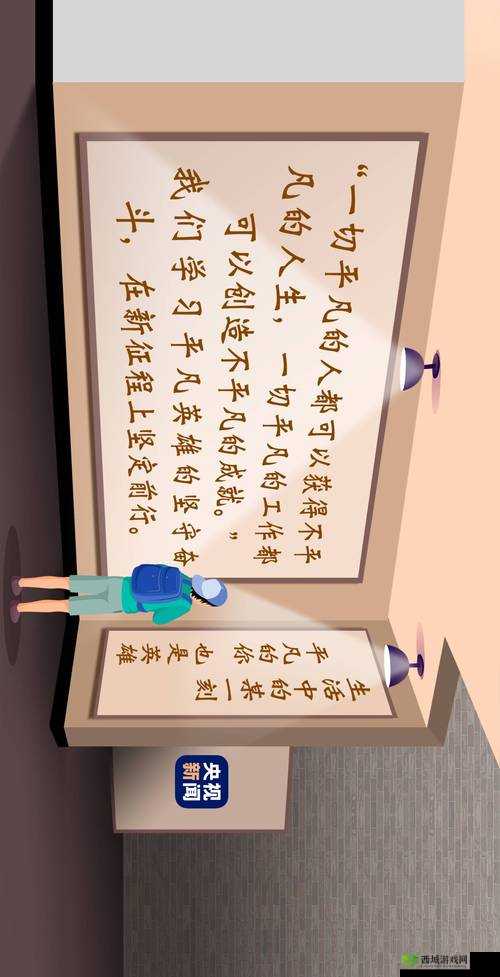 “一切平凡的人都可以获得不平
凡的人生，一切平凡的工作都
可以创造不平凡的成就。”
我们学习平凡英雄的坚守奋
斗，在新征程上坚定前行。
生活中的某一刻
平凡的你也是英雄
央视
新闻
西城游戏网